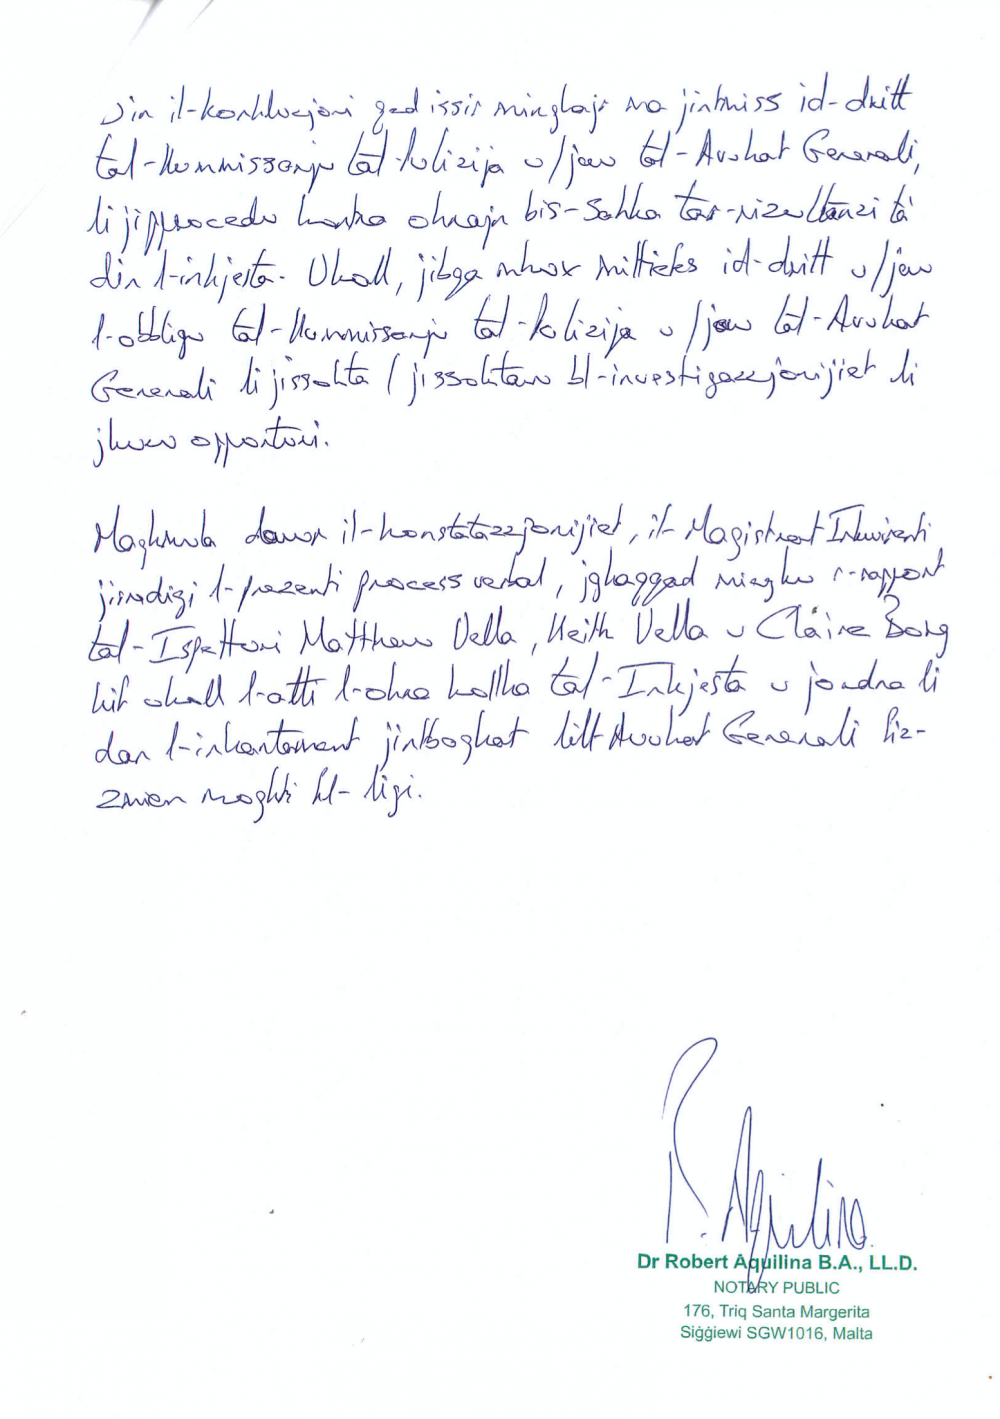 Din il-konkluzjoni qed issir minghajr ma jintmiss id-dritt
tal-Kummissarju tal-Pulizija u/jew tal-Avukat Generali,
li jipprocedu kontra ohrajn bis-sahha tar-rizultanzi ta'
din l-inkjesta. Ukoll, jibqa mhux mittiefes id-dritt u/jew
l-obbligu tal-Kummissarju tal-Pulizija u/jew tal-Avukat
Generali li jissokta / jissoktaw bl-investigazzjonijiet li
jkunu opportuni.
Maghmula dawn il-konstatazzjonijiet, il-Magistrat Inkwirenti
jirredigi l-prezenti process verbal, jghaqqad mieghu r-rapport
tal-Ispetturi Matthew Vella, Keith Vella u Claire Borg
kif ukoll l-atti l-ohra kollha tal-Inkjesta u jordna li
dan l-inkartament jintbaghat lill-Avukat Generali fiz-
zmien moghti fil-ligi.
R. Aquilina
Dr Robert Aquilina B.A., LL.D.
NOTARY PUBLIC
176, Triq Santa Margerita
Siġġiewi SGW1016, Malta